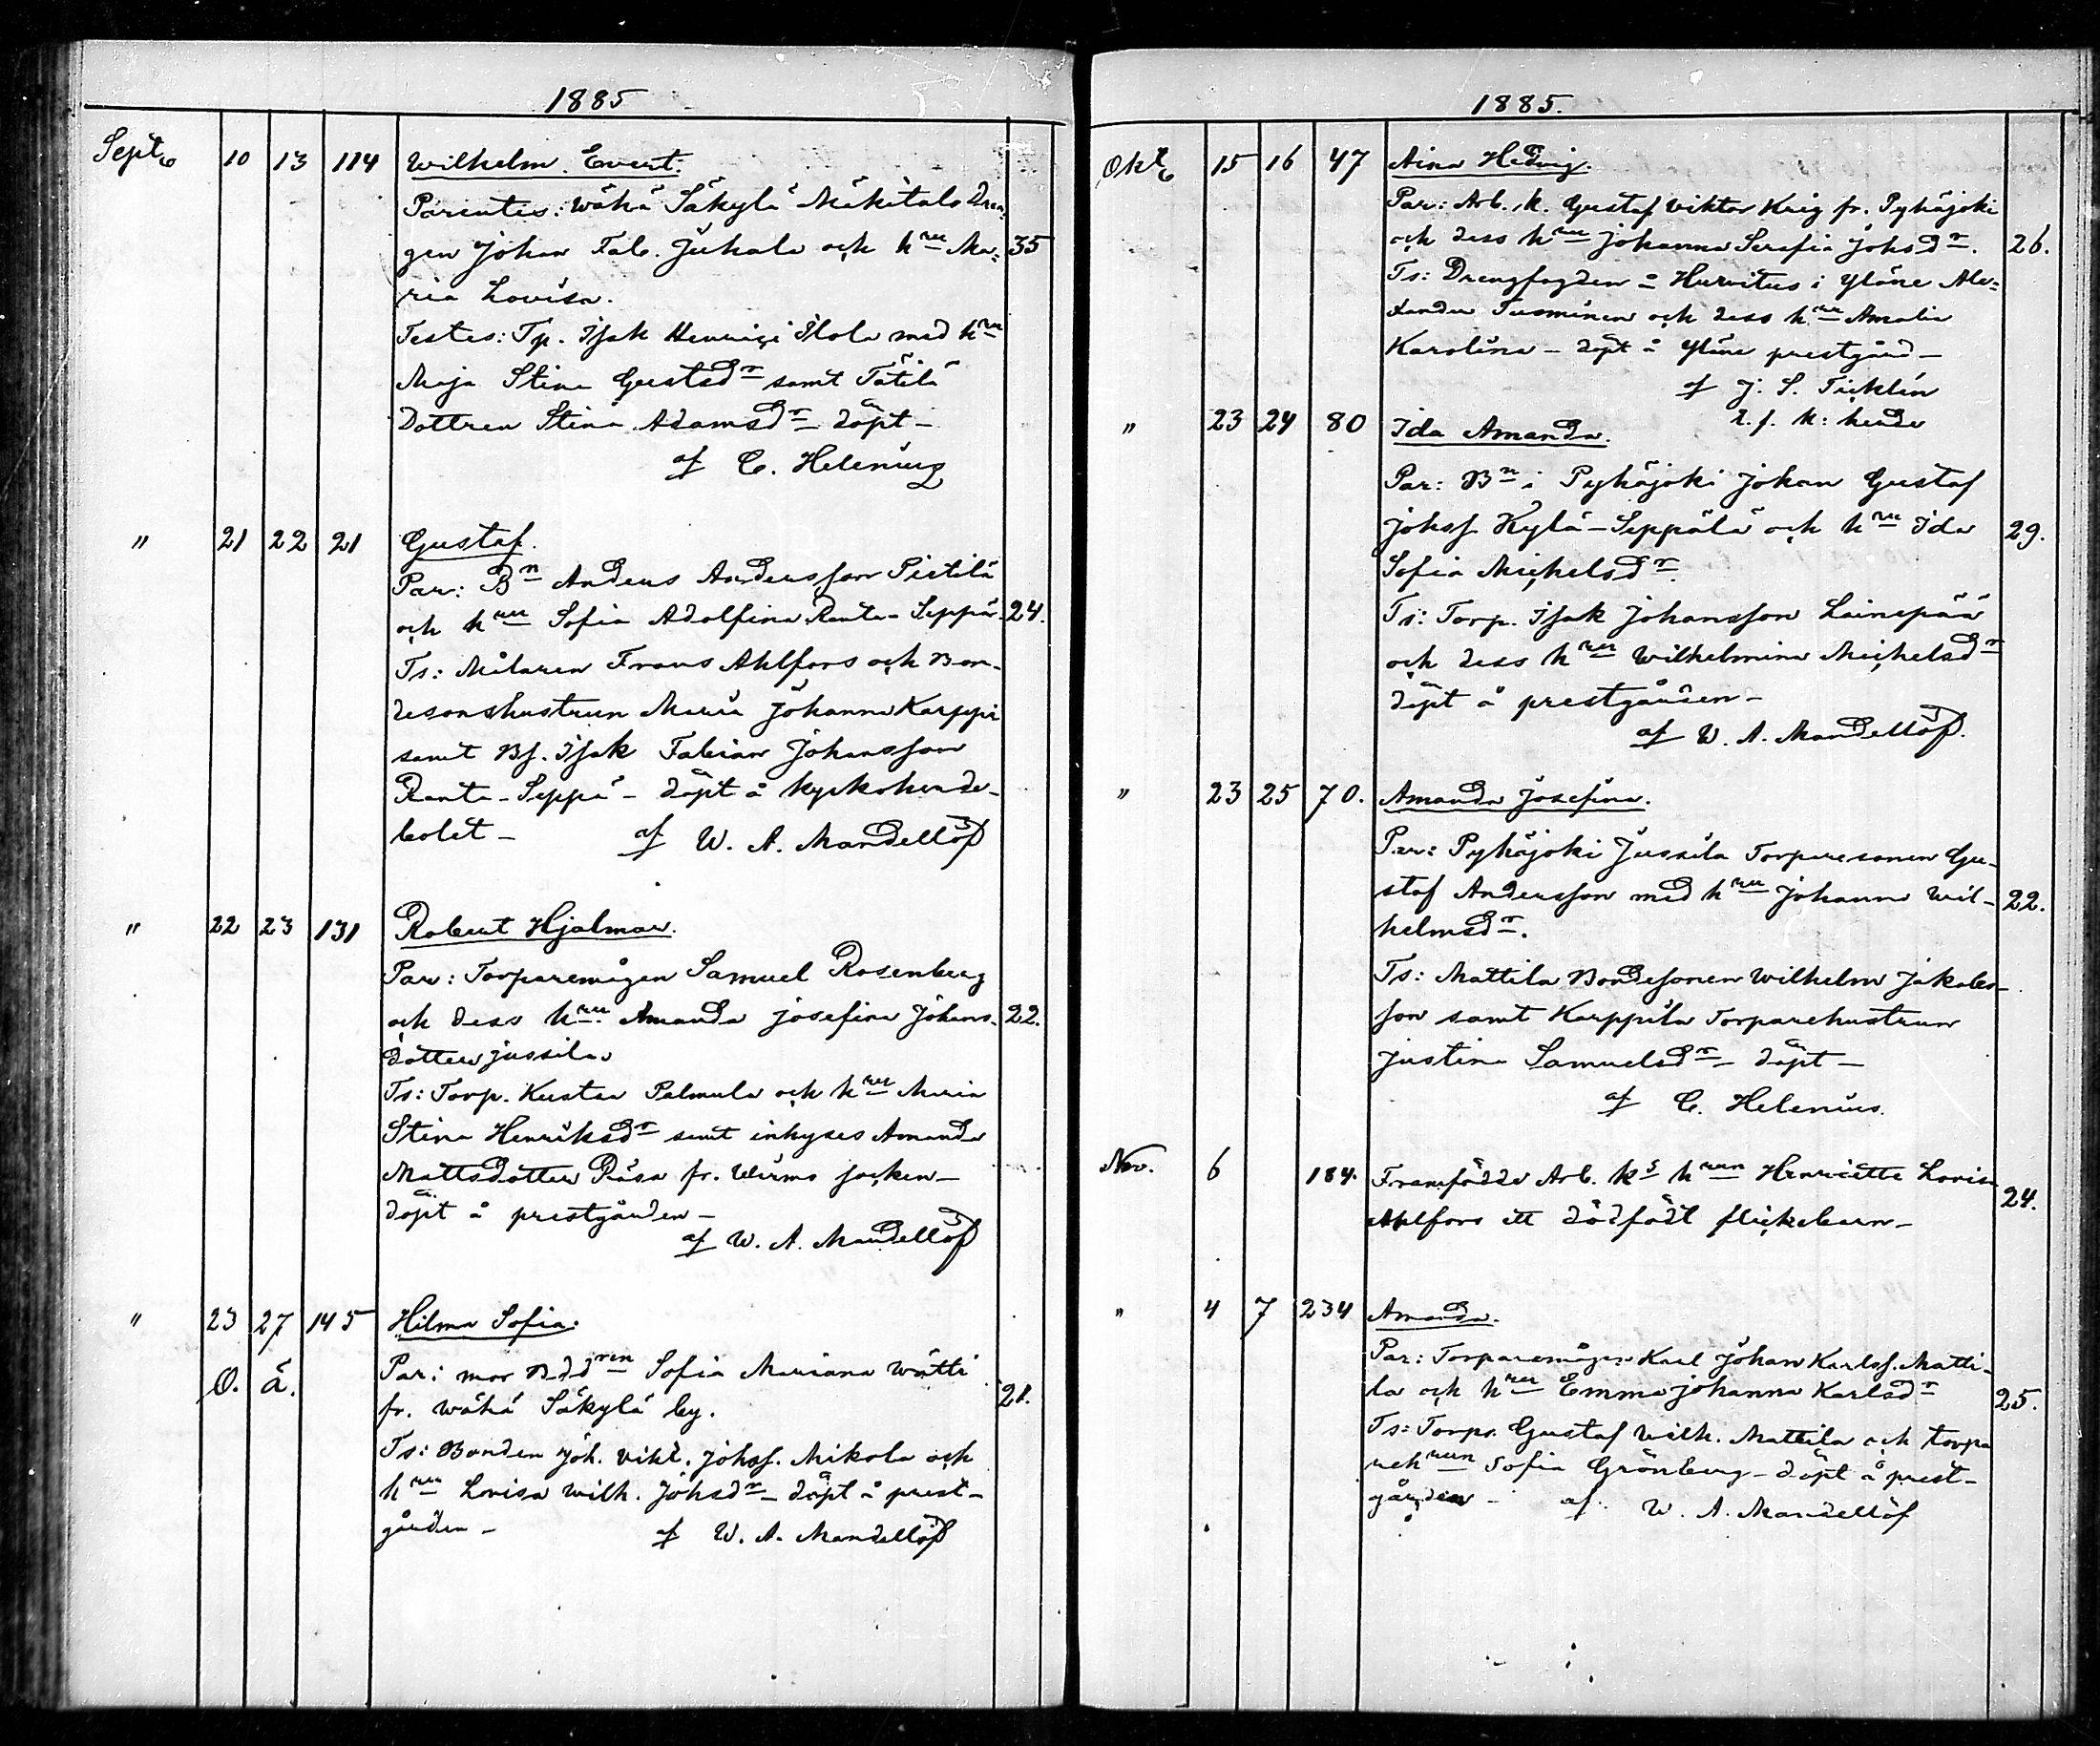 1885
Septr 10 13 114 Wilhelm Evert.
Parentes: Wähä Säkylä Mäkitalo Drän-
gen Johan Fab. Juhala och hru Ma= 35
ria Lovisa.
Testes: Tp. Isak Henriçi Ilola med hru
Maja Stina Gustsdr samt Tätilä
Dottren Stina Adamsdr döpt –
af C. Helenius
" 21 22 21 Gustaf.
Par: Bn Anders Andersson Pistilä
och hru Sofia Adolfina Ranta-Seppä. 24.
Ts: Målaren Frans Ahlfors och Bon-
desonshustrun Maria Johanna Karppi
samt Bs. Isak Fabian Johansson
Ranta-Seppä – döpt å kyrkoherde-
bolet – af W. A. Mandellöf
" 22 23 131 Robert Hjalmar.
Par: Torparemågen Samuel Rosenberg
och dess hru Amanda Josefina Johans- 22.
dotter Jussila.
Ts: Torp. Kustaa Palmula och hru Maria
Stina Henriksdr samt inhyses Amanda
Mattsdotter Räsa fr. Wirmo socken –
döpt å prestgården –
af W. A. Mandellöf
" 23 27 145 Hilma Sofia.
O. ä. Par: mor Bddren Sofia Mariana Wätti
fr. Wähä Säkylä by. 21.
Ts: Bonden Joh. Vikt. Johss. Mikola och
hru Lovisa Wilh. Johsdr – döpt å prest-
gården – af W. A. Mandellöf
1885.
Oktr 15 16 47 Aina Hedvig.
Par: Arb. k. Gustaf Viktor Krig fr. Pyhäjoki
och dess hru Johanna Serafia Johsdr. 26.
Ts: Drengfogden å Huvitus i Yläne Ale=
xander Tusminen och dess hru Amalia
Karolina – döpt å Yläne prestgård –
af J. S. Ticklén
" 23 24 80 Ida Amanda.
Par: Bn i Pyhäjoki Johan Gustaf
Johss Kylä-Seppälä och hru Ida 29.
Sofia Michelsdr.
Ts: Torp. Isak Johansson Lainepää
och dess hru Wilhelmina Michelsdr
döpt å prestgården –
af W. A. Mandellöf.
" 23 25 70. Amanda Josefina.
Par: Pyhäjoki Jussila Torparesonen Gu-
staf Andersson med hru Johanna Wil- 22.
helmsdr.
Ts: Mattila Bondesonen Wilhelm Jakobs-
son samt Karppila Torparehustrun
Justina Samuelsdr – döpt –
af C. Helenius.
Nov. 6 184. Framfödde Arb. ks hrun Henriette Lovisa
Ahlfors ett dödfödt flickebarn – 24.
" 4 7 234 Amanda.
Par: Torparemågen Karl Johan Karlss. Matti-
la och hru Emma Johanna Karlsdr 25.
Ts: Torp. Gustaf Wilh. Mattila och torpa
rehrun Sofia Grönberg – döpt å prest-
gården – af W. A. Mandellöf